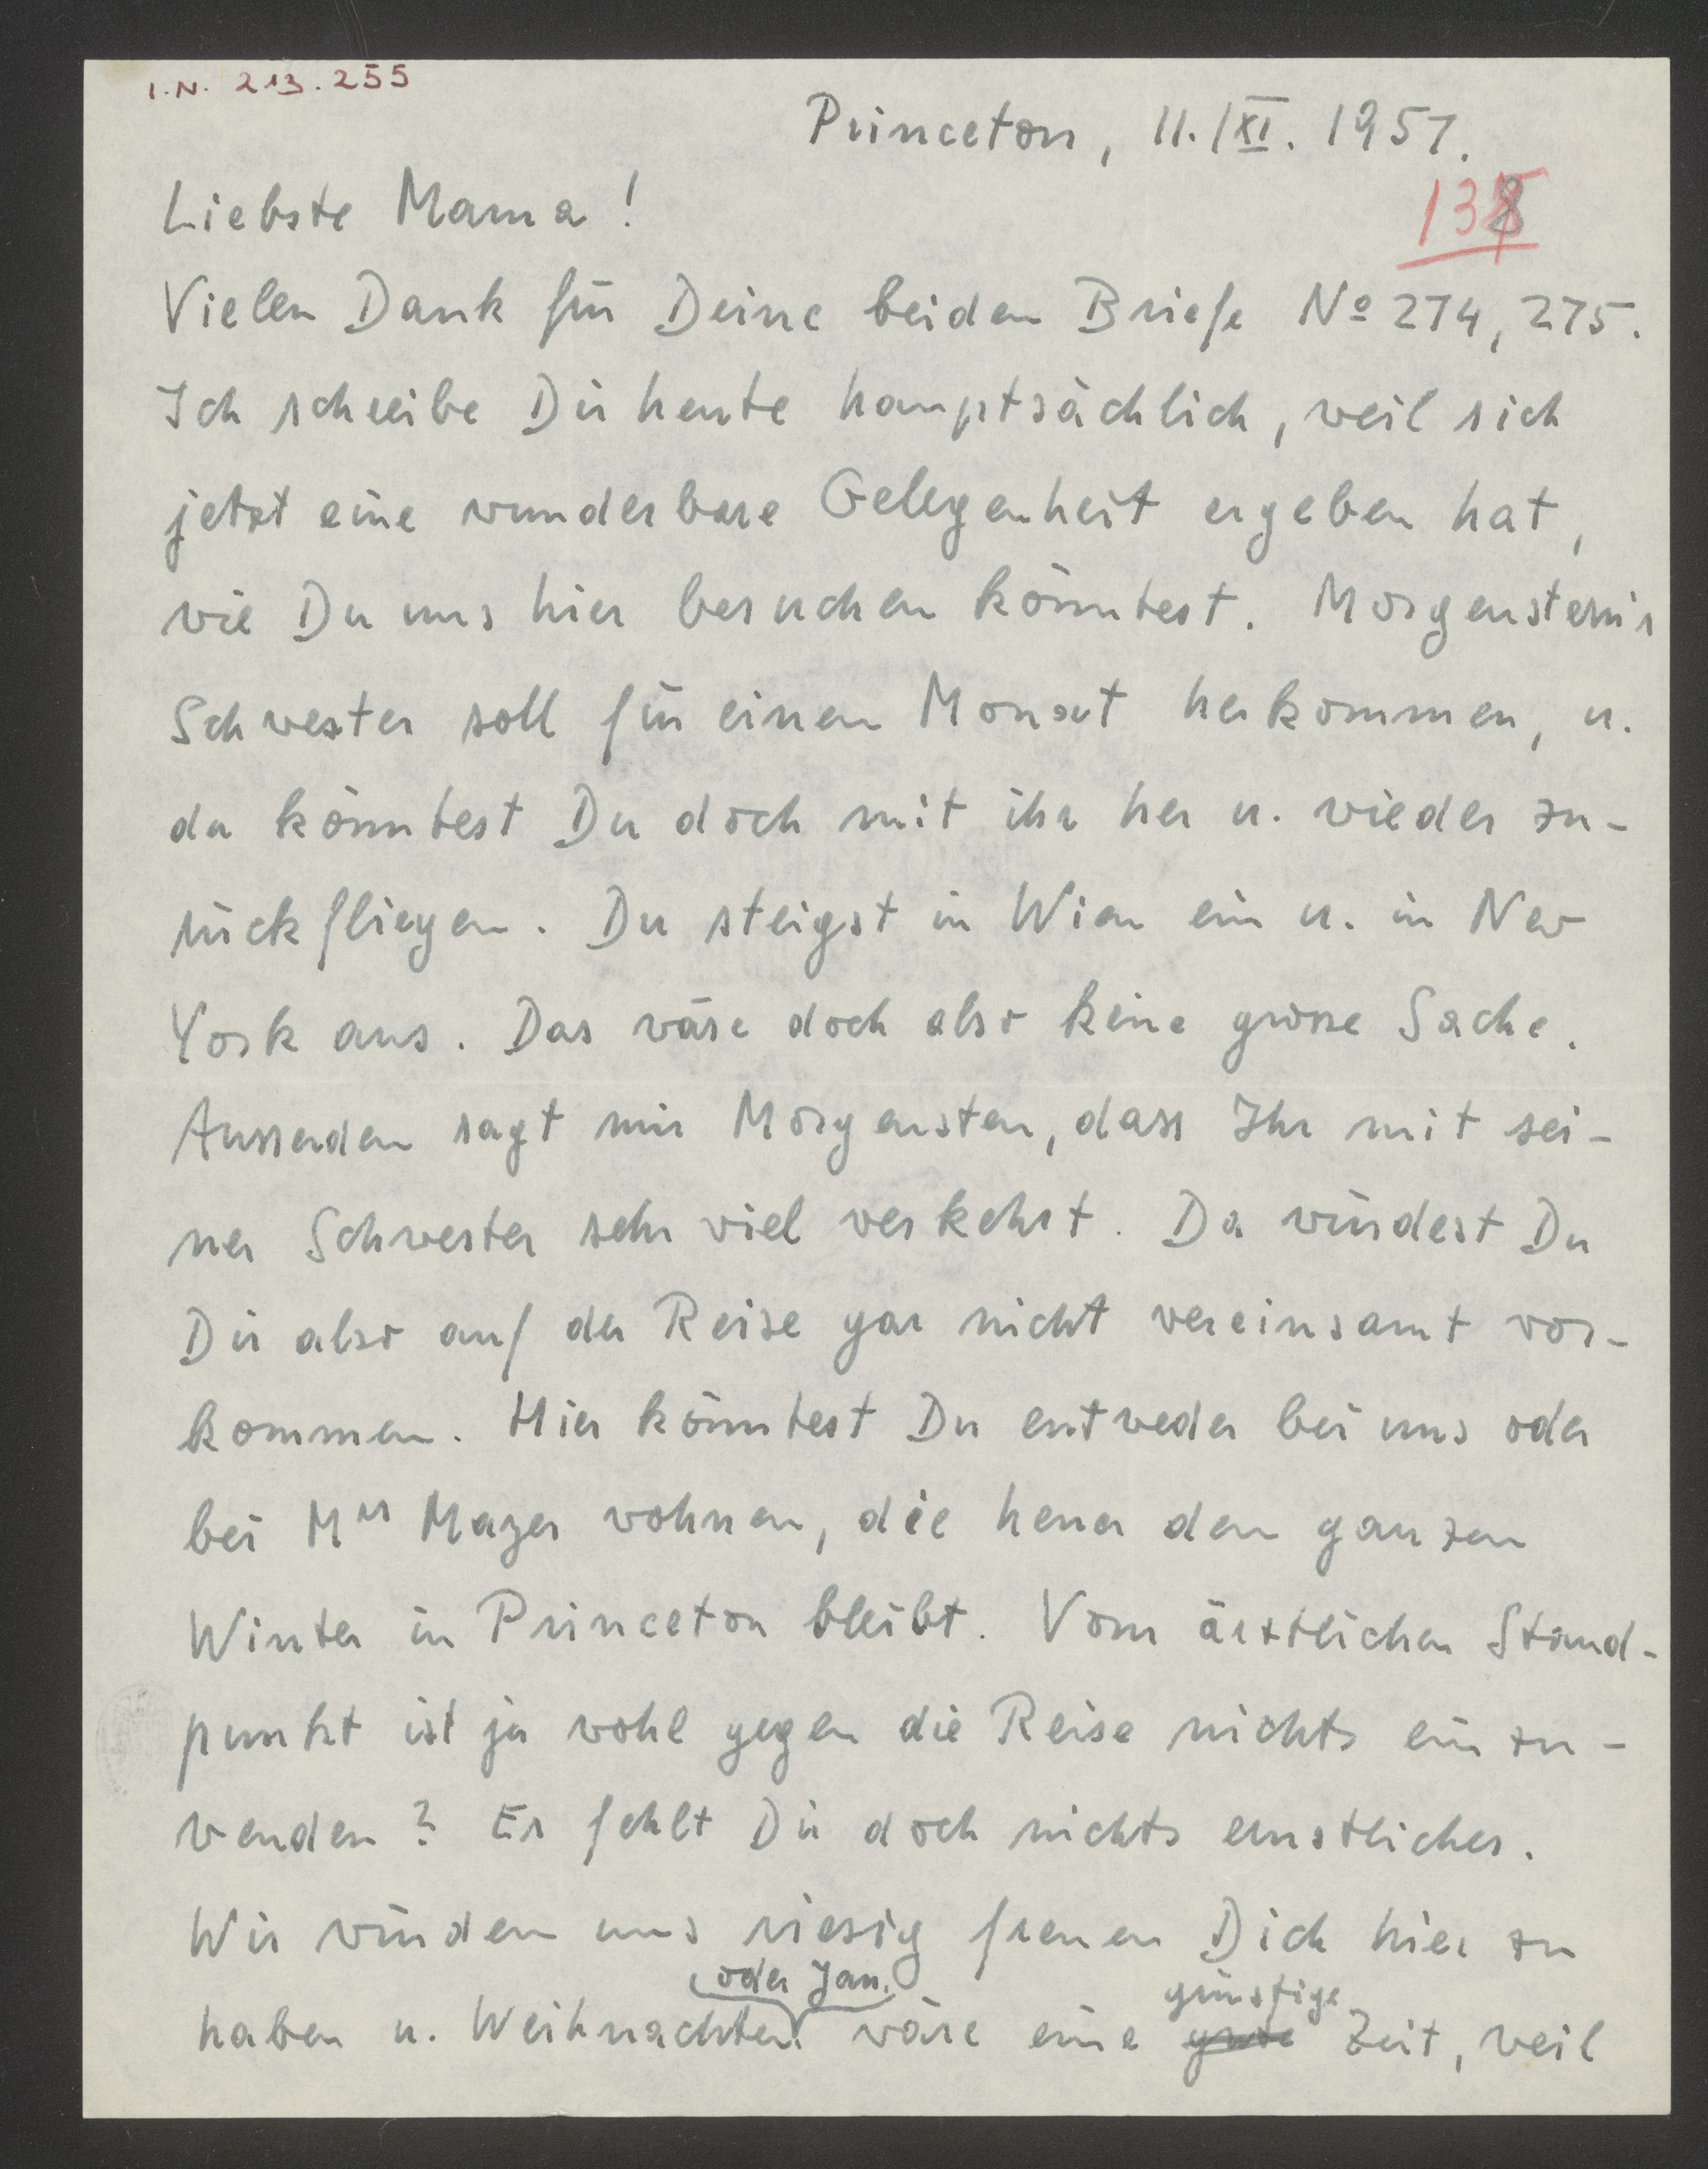 I.N. 213.255
Princeton, 11./XI. 1957.
138
Liebste Mama!
Vielen Dank für Deine beiden Briefe Nº 274, 275.
Ich schreibe Dir heute hauptsächlich, weil sich
jetzt eine wunderbare Gelegenheit ergeben hat,
wie Du uns hier besuchen könntest. Morgenstern's
Schwester soll für einen Monat herkommen, u.
da könntest Du doch mit ihr her u. wieder zu-
rückfliegen. Du steigst in Wien ein u. in New
York aus. Das wäre doch also keine grosse Sache.
Ausserdem sagt mir Morgenstern, dass Ihr mit sei-
ner Schwester sehr viel verkehrt. Da würdest Du
Dir also auf der Reise gar nicht vereinsamt vor-
kommen. Hier könntest Du entweder bei uns oder
bei Mrs Mazer wohnen, die heuer den ganzen
Winter in Princeton bleibt. Vom ärztlichen Stand-
punkt ist ja wohl gegen die Reise nichts einzu-
wenden? Es fehlt Dir doch nichts ernstliches.
Wir würden uns riesig freuen Dich hier zu
oder Jan. günstige
haben u. Weihnachten wäre eine gute Zeit, weil